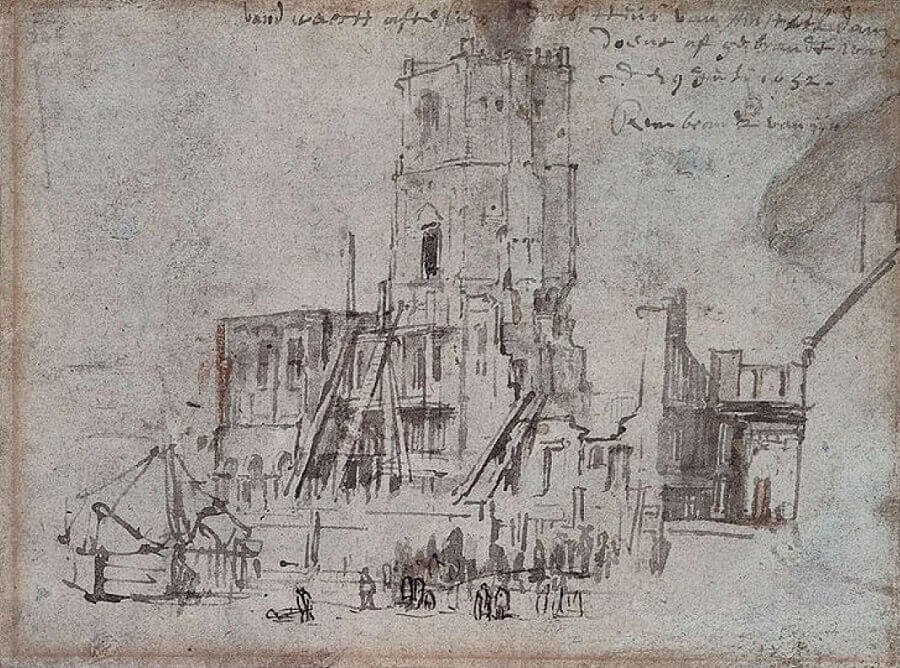 vand waech afte sien stats Huis van Amsteldam
doent afgebrandt was
den 9 Julij 1652.
Rembrandt van rijn